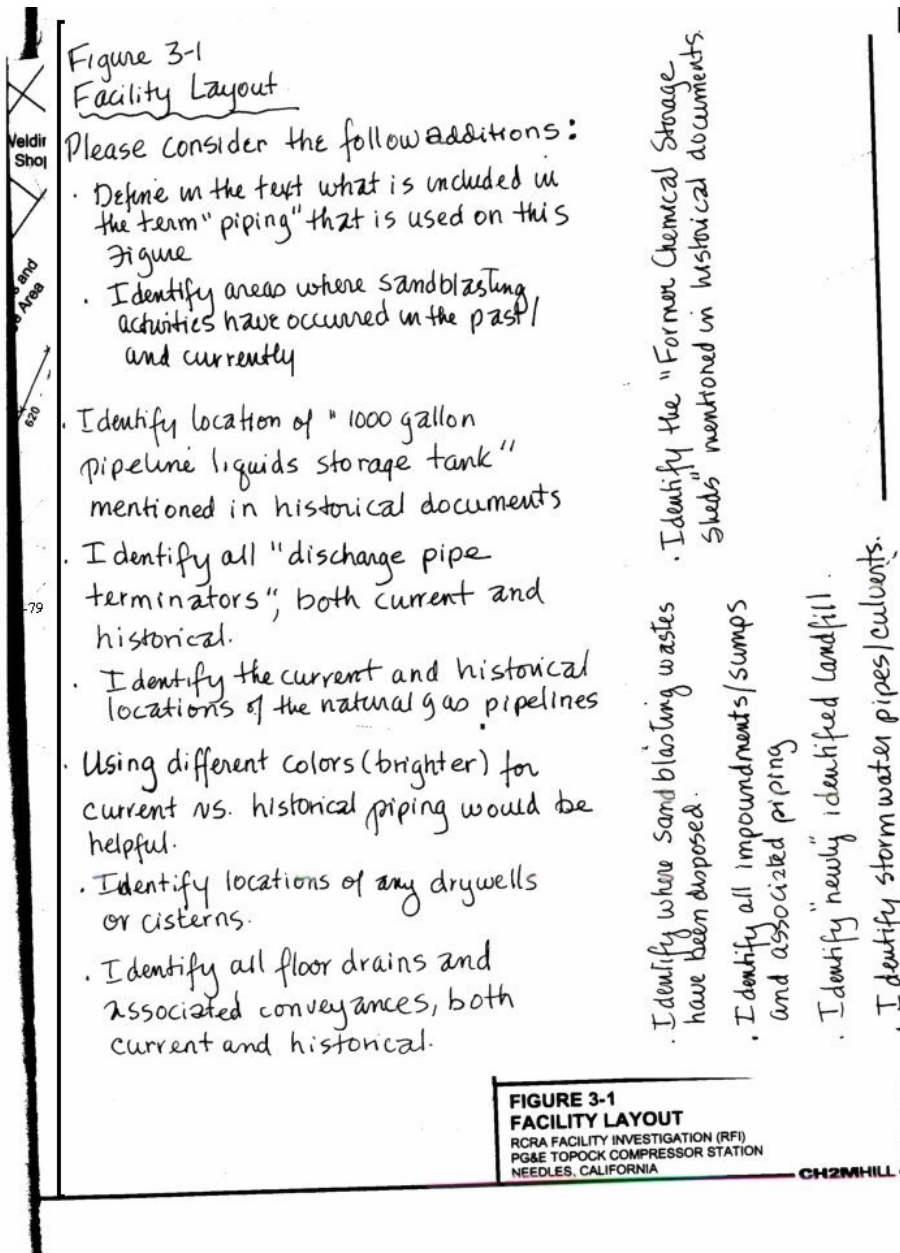 Figure 3-1
Facility Layout
Please consider the follow additions:
· Define in the text what is included in
the term "piping" that is used on this
Figure
· Identify areas where sandblasting
activities have occurred in the past/
and currently
· Identify location of "1000 gallon
pipeline liquids storage tank"
mentioned in historical documents
· Identify all "discharge pipe
terminators", both current and
historical.
· Identify the current and historical
locations of the natural gas pipelines
· Using different colors (brighter) for
current vs. historical piping would be
helpful.
· Identify locations of any drywells
or cisterns.
· Identify all floor drains and
associated conveyances, both
current and historical.
· Identify where sandblasting wastes
have been disposed.
· Identify the "Former Chemical Storage
Sheds" mentioned in historical documents.
· Identify all impoundments/sumps
and associated piping
· Identify "newly" identified landfill.
· Identify stormwater pipes/culverts.
Veldin
Shop
s and
Area
620
-79
FIGURE 3-1
FACILITY LAYOUT
RCRA FACILITY INVESTIGATION (RFI)
PG&E TOPOCK COMPRESSOR STATION
NEEDLES, CALIFORNIA
CH2MHILL